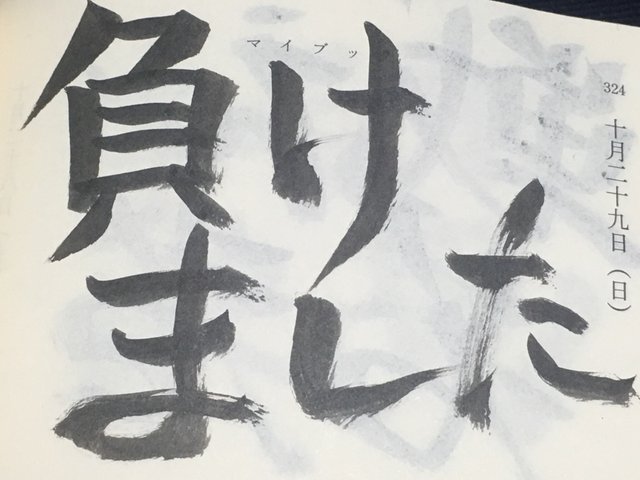 マイブッ
324
十月二十九日（日）
負け
ました